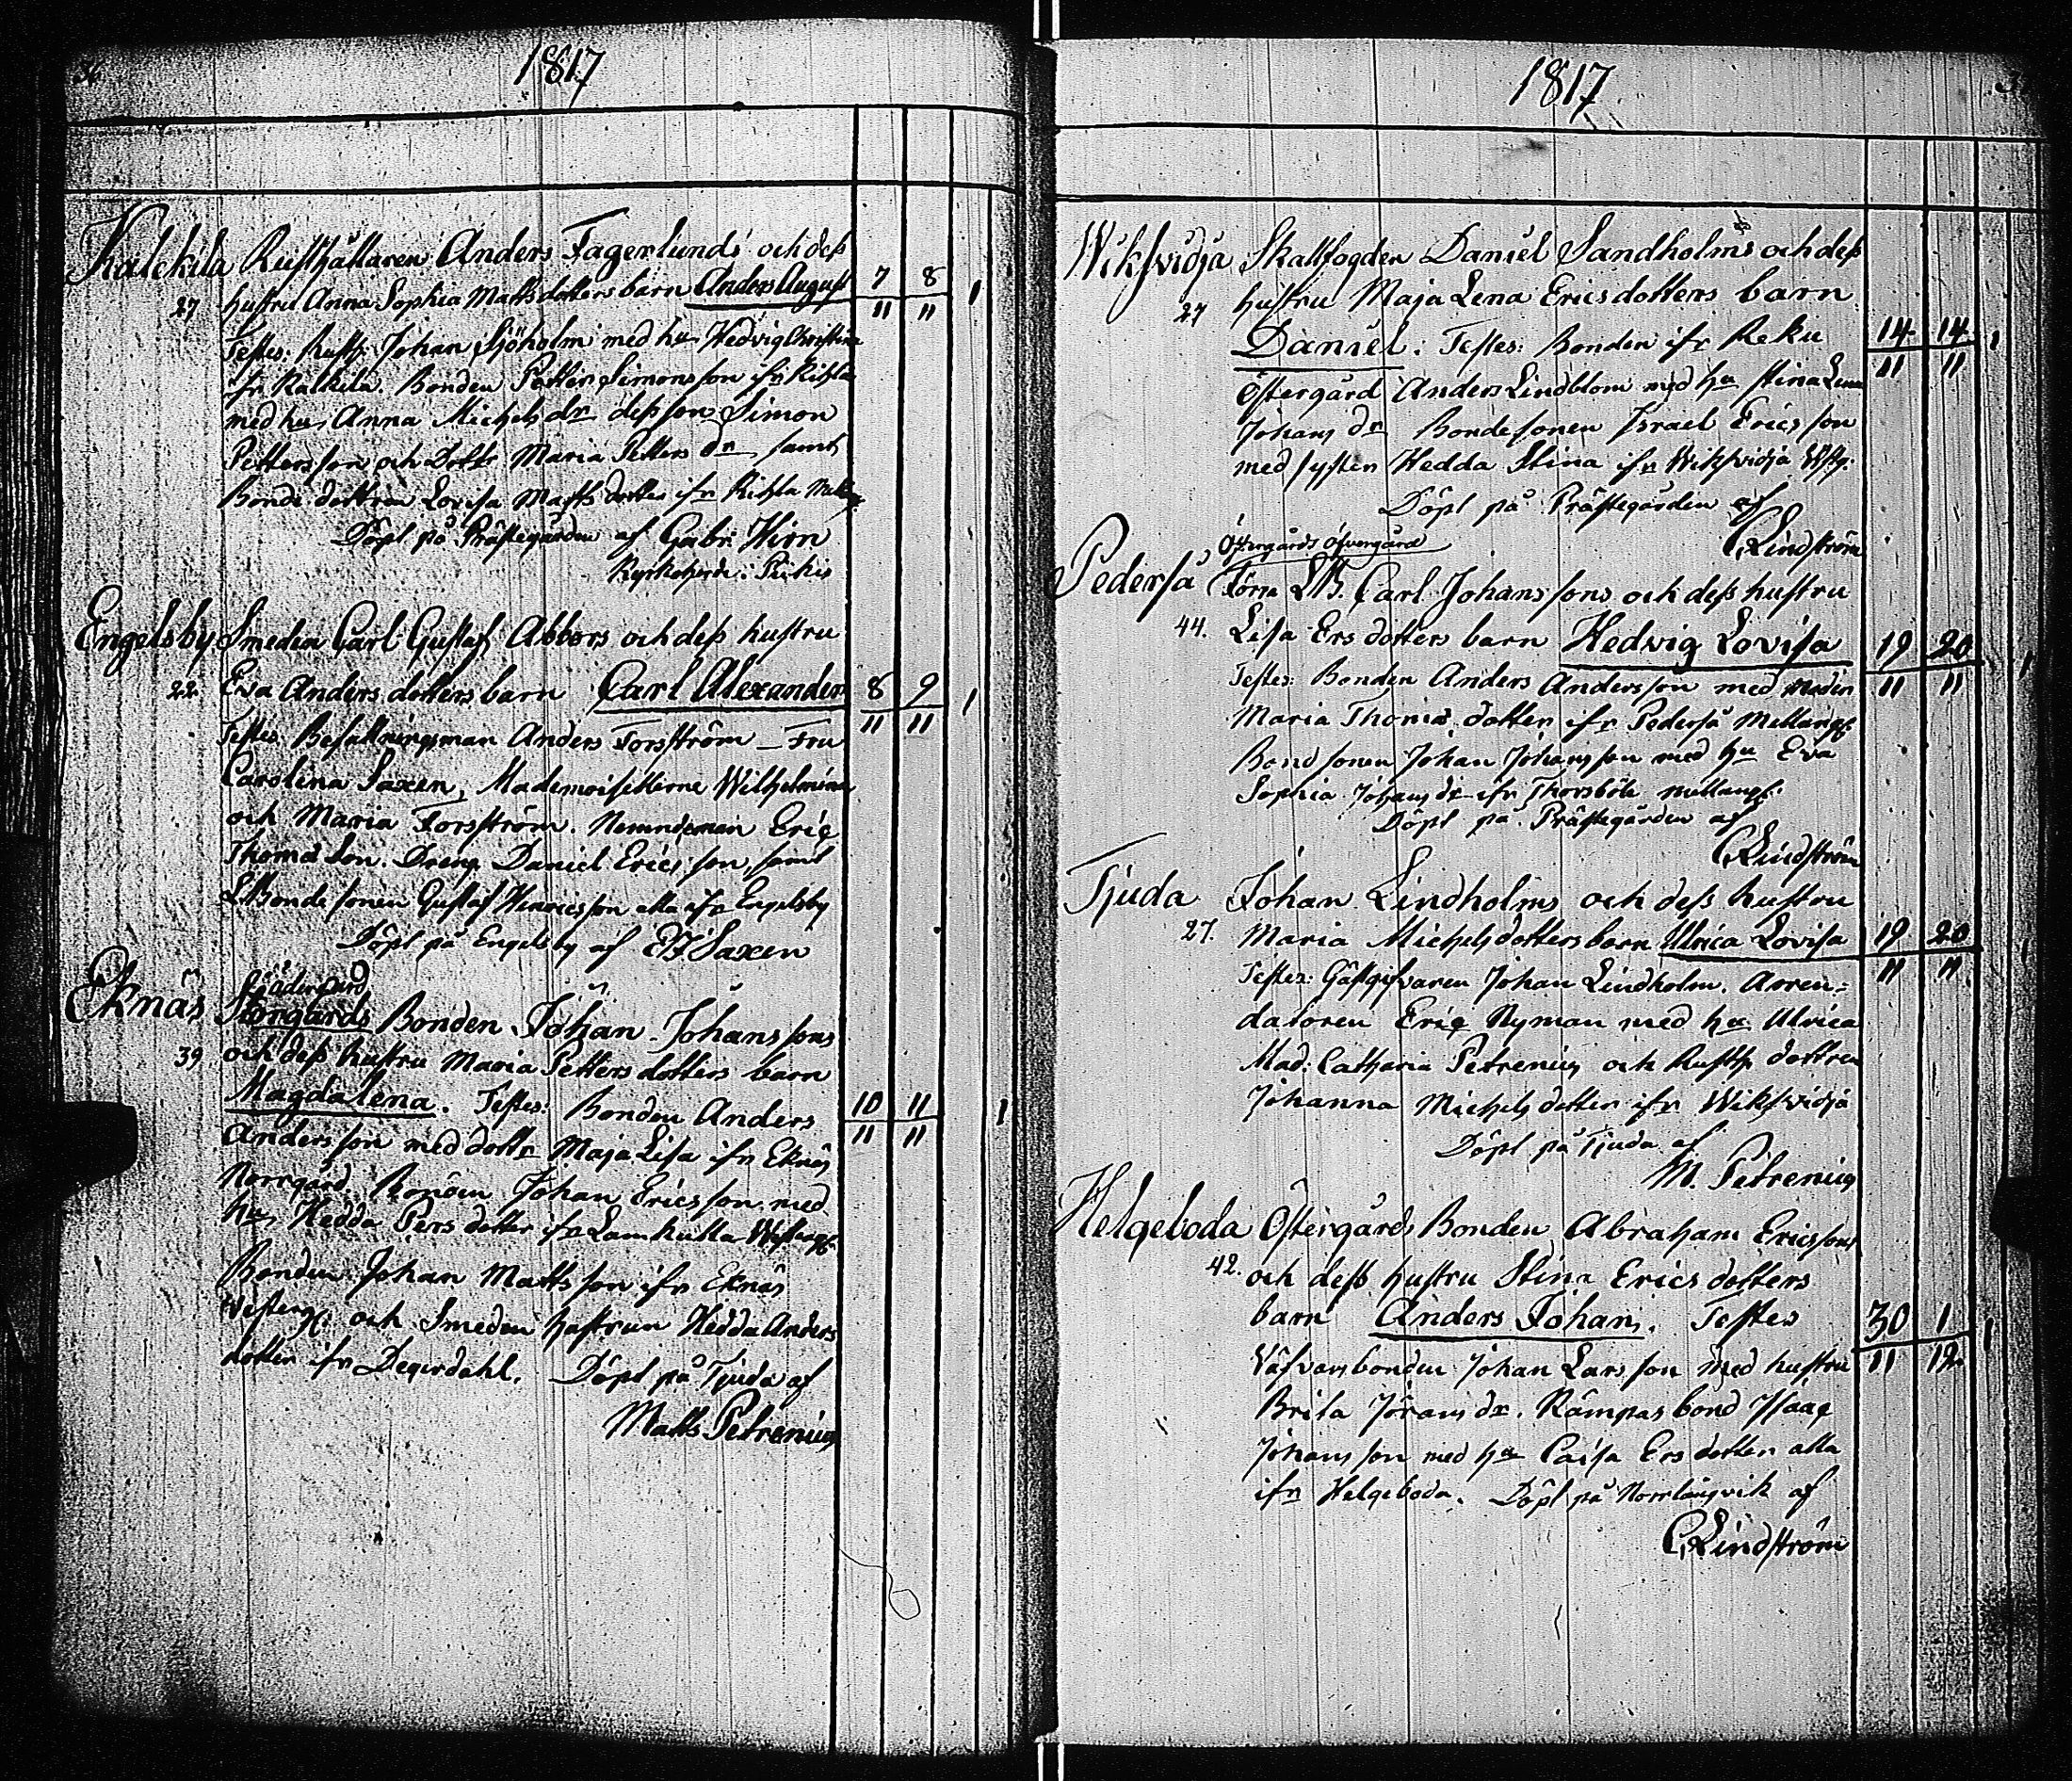 36
1817
Kalckila Rusthållaren Anders Fagerlunds och dess
27 hustru Anna Sophia Mattsdotters barn Anders August 7 8 1
Testes: Rusth. Johan Sjöholm med hu Hedvig Christina 11 11
ifr Kalkila. Bonden Petter Simonsson ifr Kihla
med hu Anna Michelsdr dess son Simon
Pettersson och Dottr Maria Petters dr samt
Bonde dottren Lovisa Matts dotter ifr Kihla
Döpt på Prästegården af Gabr: Hirn
Kyrkoherde i Pikis
Engelsby Smeden Carl Gustaf Abbors och dess hustru
22 Eva Anders dotters barn Carl Alexander 8 9 1
Testes Befallningsman Anders Forsström – Fru 11 11
Carolina Saxen, Mademoisellerne Wilhelmina
och Maria Forsström. Nemndeman Eric
Thomas Son. Dreng Daniel Ericsson, samt
LBonde sonen Gustaf Henricsson alla ifr Engelsby
Döpt på Engelsby af Saxen
Södergård
Eknäs Storgårds Bonden Johan Johans sons
39 och dess hustru Maria Petters dotters barn
Magdalena. Testes: Bonden Anders 10 11 1
Andersson med dottr Maja Lisa ifr Eknäs 11 11
Norrgård. Bonden Johan Ericsson med
hu Hedda Pers dotter ifr Lamkulla
Bonden Johan Mattsson ifr Eknäs
Westerg: och Smeden hustrun Hedda Anders
dotter ifr Degerdahl. Döpt på Tjuda af
Matts Petrenius
1817
Wiksvidja Skattfogden Daniel Sandholms och dess
27 hustru Maja Lena Ericsdotters barn
Daniel: Testes: Bonden ifr Reku 14 14 1
Östergård Anders Lindblom med hu Stina Lena 11 11
Johans dr Bondesonen Israel Ericsson
med syster Hedda Stina ifr Wiksvidja
Döpt på Prästegården af
CLindström
Östergårds Öfvergård
Pederså Förra LB. Carl Johans sons och dess hustru
44. Lisa Ers dotters barn Hedvig Lovisa 19 20 1
Testes: Bonden Anders Andersson med Moder 11 11
Maria Thomas dotter ifr Pederså Mellang.
Bondsonen Johan Johansson med hu Eva
Sophia Johans dr ifr Thorsböle mellang.
Döpt på Prästegården af
CLindström
Tjuda Johan Lindholms och dess hustru
27. Maria Michels dotters barn Ulrica Lovisa 19 20 1
Testes: Gästgifvaren Johan Lindholm. Arren= 11 11
datoren Eric Nyman med hu Ulrica
Mad: Catharia Petrenius och Rusth dottren
Johanna Michels dotter ifr Wiksvidja
Döpt på Tjuda af
M. Petrenius
Helgeboda Östergårds Bonden Abraham Ericssons
42. och dess hustru Stina Erics dotters
barn Anders Johan. Testes 30 1 1
bonden Johan Larsson med hustru 11 12
Brita Jörans dr. Rämpas bond Isaac
Johansson med hu Caisa Ers dotter alla
ifr Helgeboda. Döpt på Norrlångvik af
CLindström